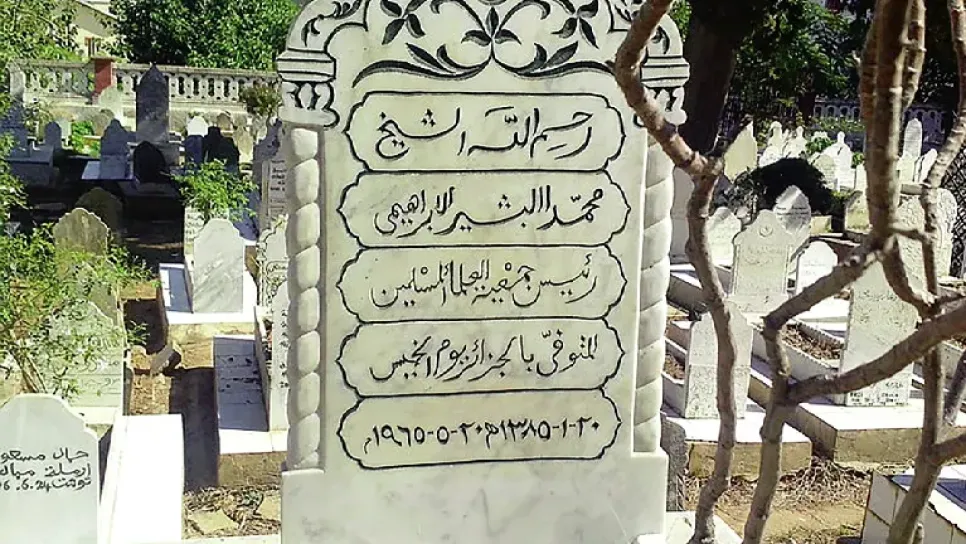 رحم الله الشيخ
محمد البشير الابراهيمي
رئيس جمعية العلماء المسلمين
المتوفى بالجزائر يوم الخميس
٢٠-١-١٣٨٥ھ ٢٠-٥-١٩٦٥م
ارملة
توفت